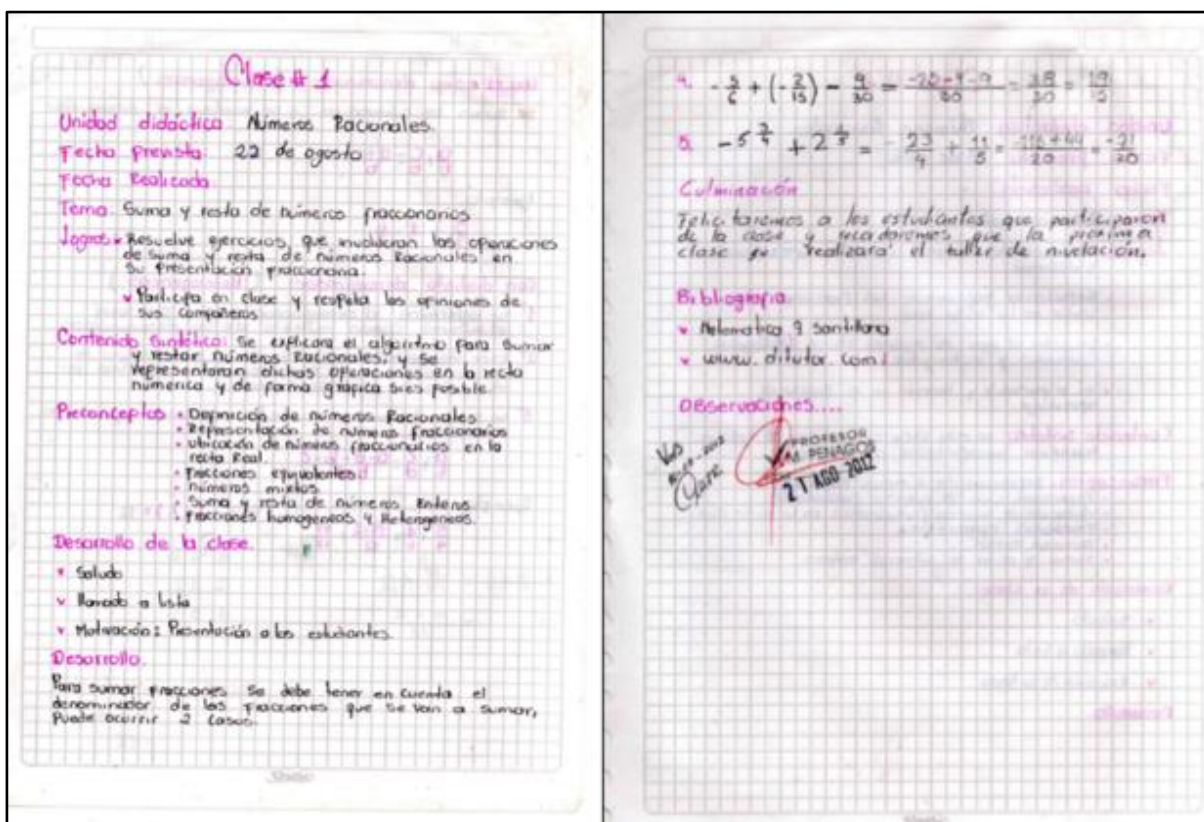 Clase # 1
Unidad didáctica Números Racionales.
Fecha prevista. 22 de agosto
Fecha Realizada
Tema. Suma y resta de números fraccionarios
Logros Resuelve ejercicios, que involucran las operaciones
de suma y resta de números Racionales en
su presentación fraccionaria.
Participa en clase y respeta las opiniones de
sus compañeros
Contenido Sintético: Se explicara el algoritmo para sumar
y restar números Racionales, y se
representaran dichas operaciones en la recta
númerica y de forma gráfica si es posible
Preconceptos • Definición de números Racionales
• Representación de números fraccionarios
• ubicación de números fraccionarios en la
recta Real.
• fracciones equivalentes.
• números mixtos.
• Suma y resta de números Enteros
• fracciones homogeneas y Heterogeneas.
Desarrollo de la clase.
Saludo
llamado a lista
Motivación: Presentación a los estudiantes.
Desarrollo.
Para sumar fracciones se debe tener en cuenta el
denominador de las fracciones que se van a sumar,
Puede ocurrir 2 casos.
4. -5/6 + (-2/15) - 9/30 = = 38/30 = 19/15
5. -5 3/4 + 2 1/5 = - 23/4 + 11/5 = = /20
Culminación
Felicitaremos a los estudiantes que participaron
de la clase y recordaremos que la proxima
clase se realizará el taller de nivelación.
Bibliografia
Matematica 9 santillana
www. ditutor. com/
Observaciones....
PROFESOR
PENAGOS
21 AGO 2012